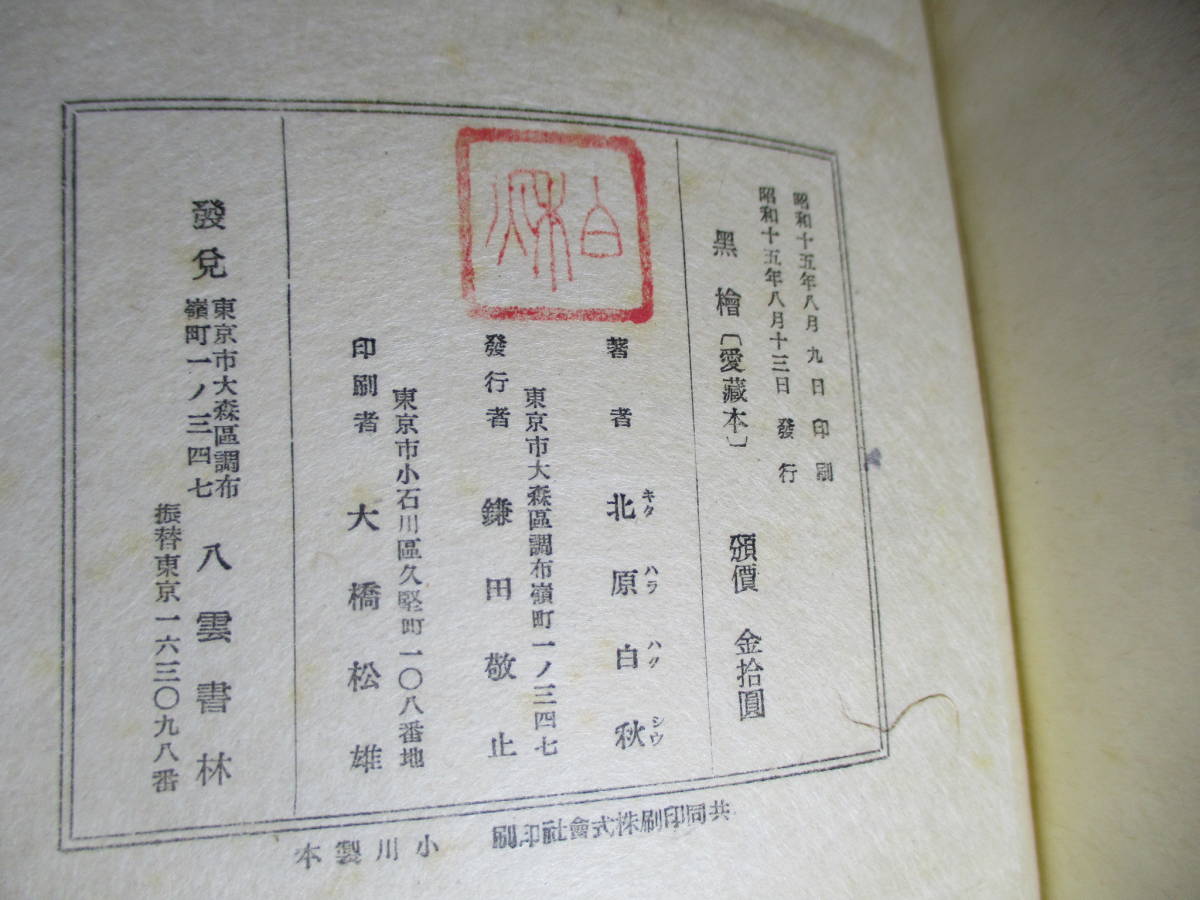 昭和十五年八月九日印刷
昭和十五年八月十三日發行
黑檜〔愛藏本〕 頒價 金拾圓
著者 北原白秋
キタ ハラ ハク シウ
東京市大森區調布嶺町一ノ三四七
發行者 鎌田敬止
東京市小石川區久堅町一〇八番地
印刷者 大橋松雄
白秋
發兌 東京市大森區調布嶺町一ノ三四七 八雲書林
振替東京一六三〇九八番
共同印刷株式會社印刷
小川製本